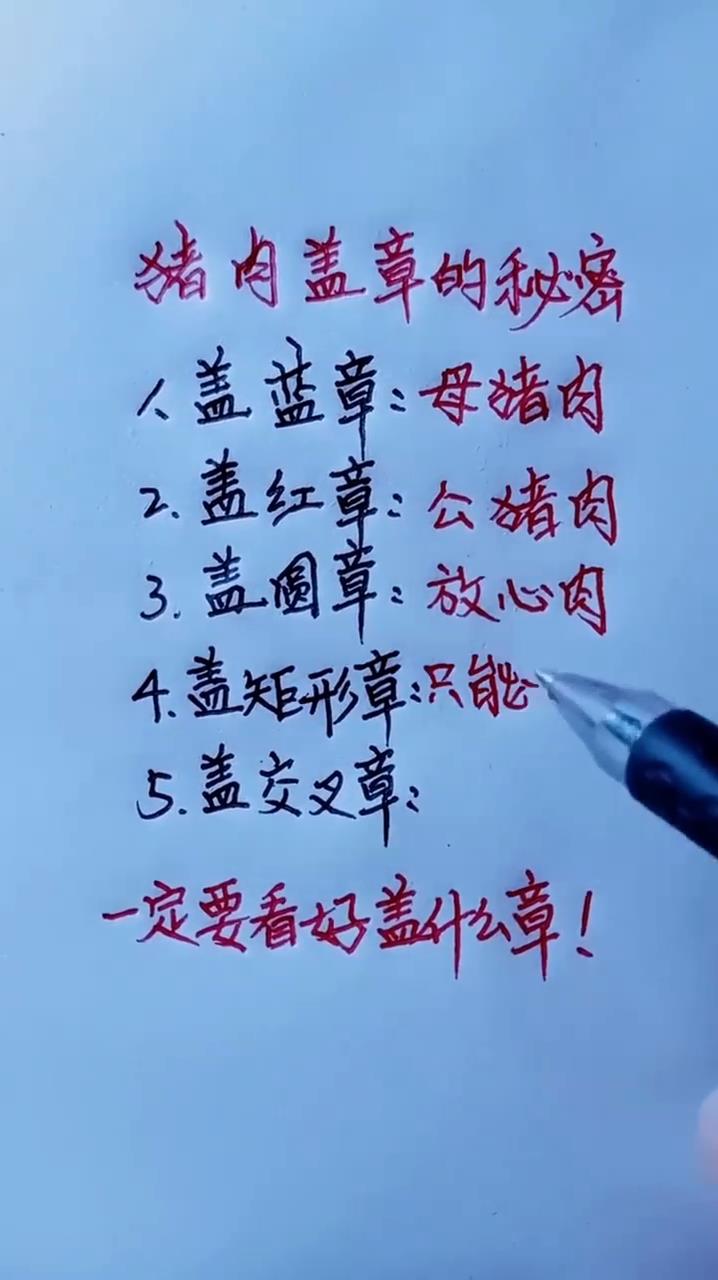 猪肉盖章的秘密
1、盖蓝章：母猪肉
2.盖红章：公猪肉
3.盖圆章：放心肉
4.盖矩形章：只能
5.盖交叉章：
一定要看好盖什么章！